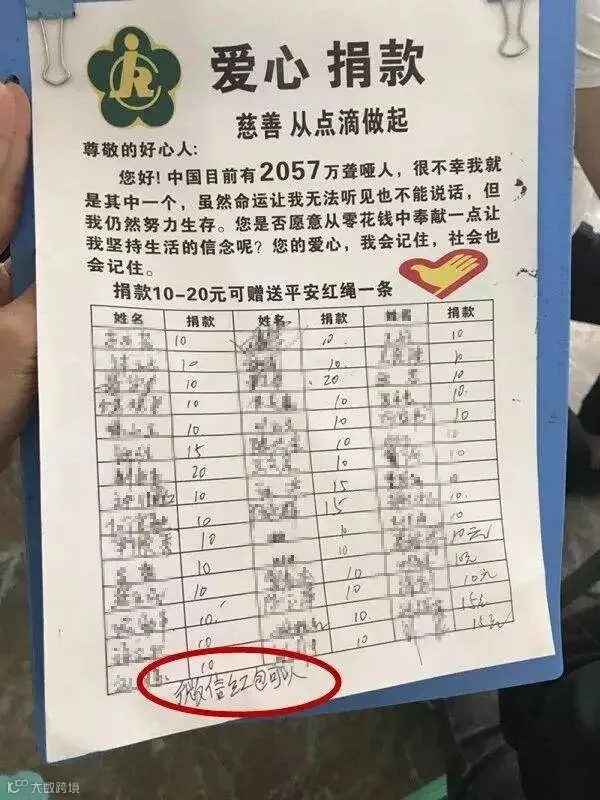 爱心 捐款
慈善 从点滴做起
尊敬的好心人:
您好! 中国目前有2057万聋哑人，很不幸我就
是其中一个，虽然命运让我无法听见也不能说话，但
我仍然努力生存。您是否愿意从零花钱中奉献一点让
我坚持生活的信念呢？您的爱心，我会记住，社会也
会记住。
捐款10-20元可赠送平安红绳一条
姓名 捐款 姓名 捐款 姓名 捐款
10 10 10
10 10 10
10 20 10
10 10 10
10 10 10
15 10 10
20 10 10
10 15 10
10 15 10
10 10 10元
10 10 10元
10 10 10元
10 10 15元
10 10 15元
10
微信红包可以
大数跨境